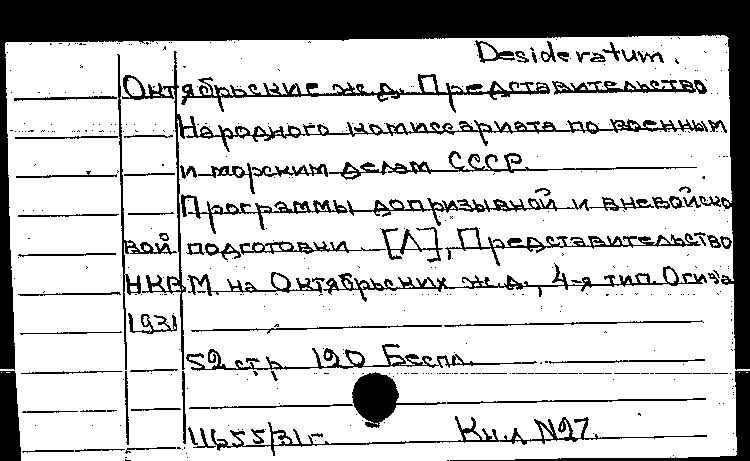 Desideratum.
Октябрьские ж.д. Представительство
Народного комиссариата по военным
и морским делам СССР.
Программы допризывной и вневойско
вой подготовки. [Л], Представительство
НКВМ. на Октябрьских ж.д., 4-я тип. Огиза
1931
52 стр 120 Беспл.
11655/31г. Кн.л №27.